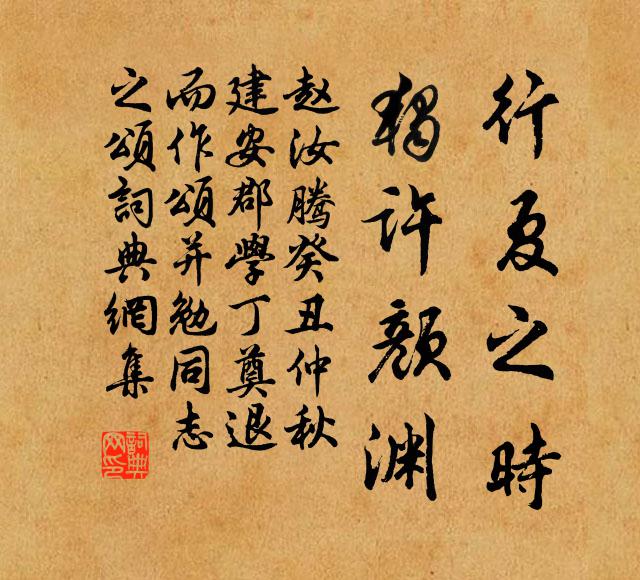 行夏之時
獨許顏淵
赵汝騰癸丑仲秋
建安郡學丁奠退
而作頌并勉同志
之頌詞典網集
詞典
网印